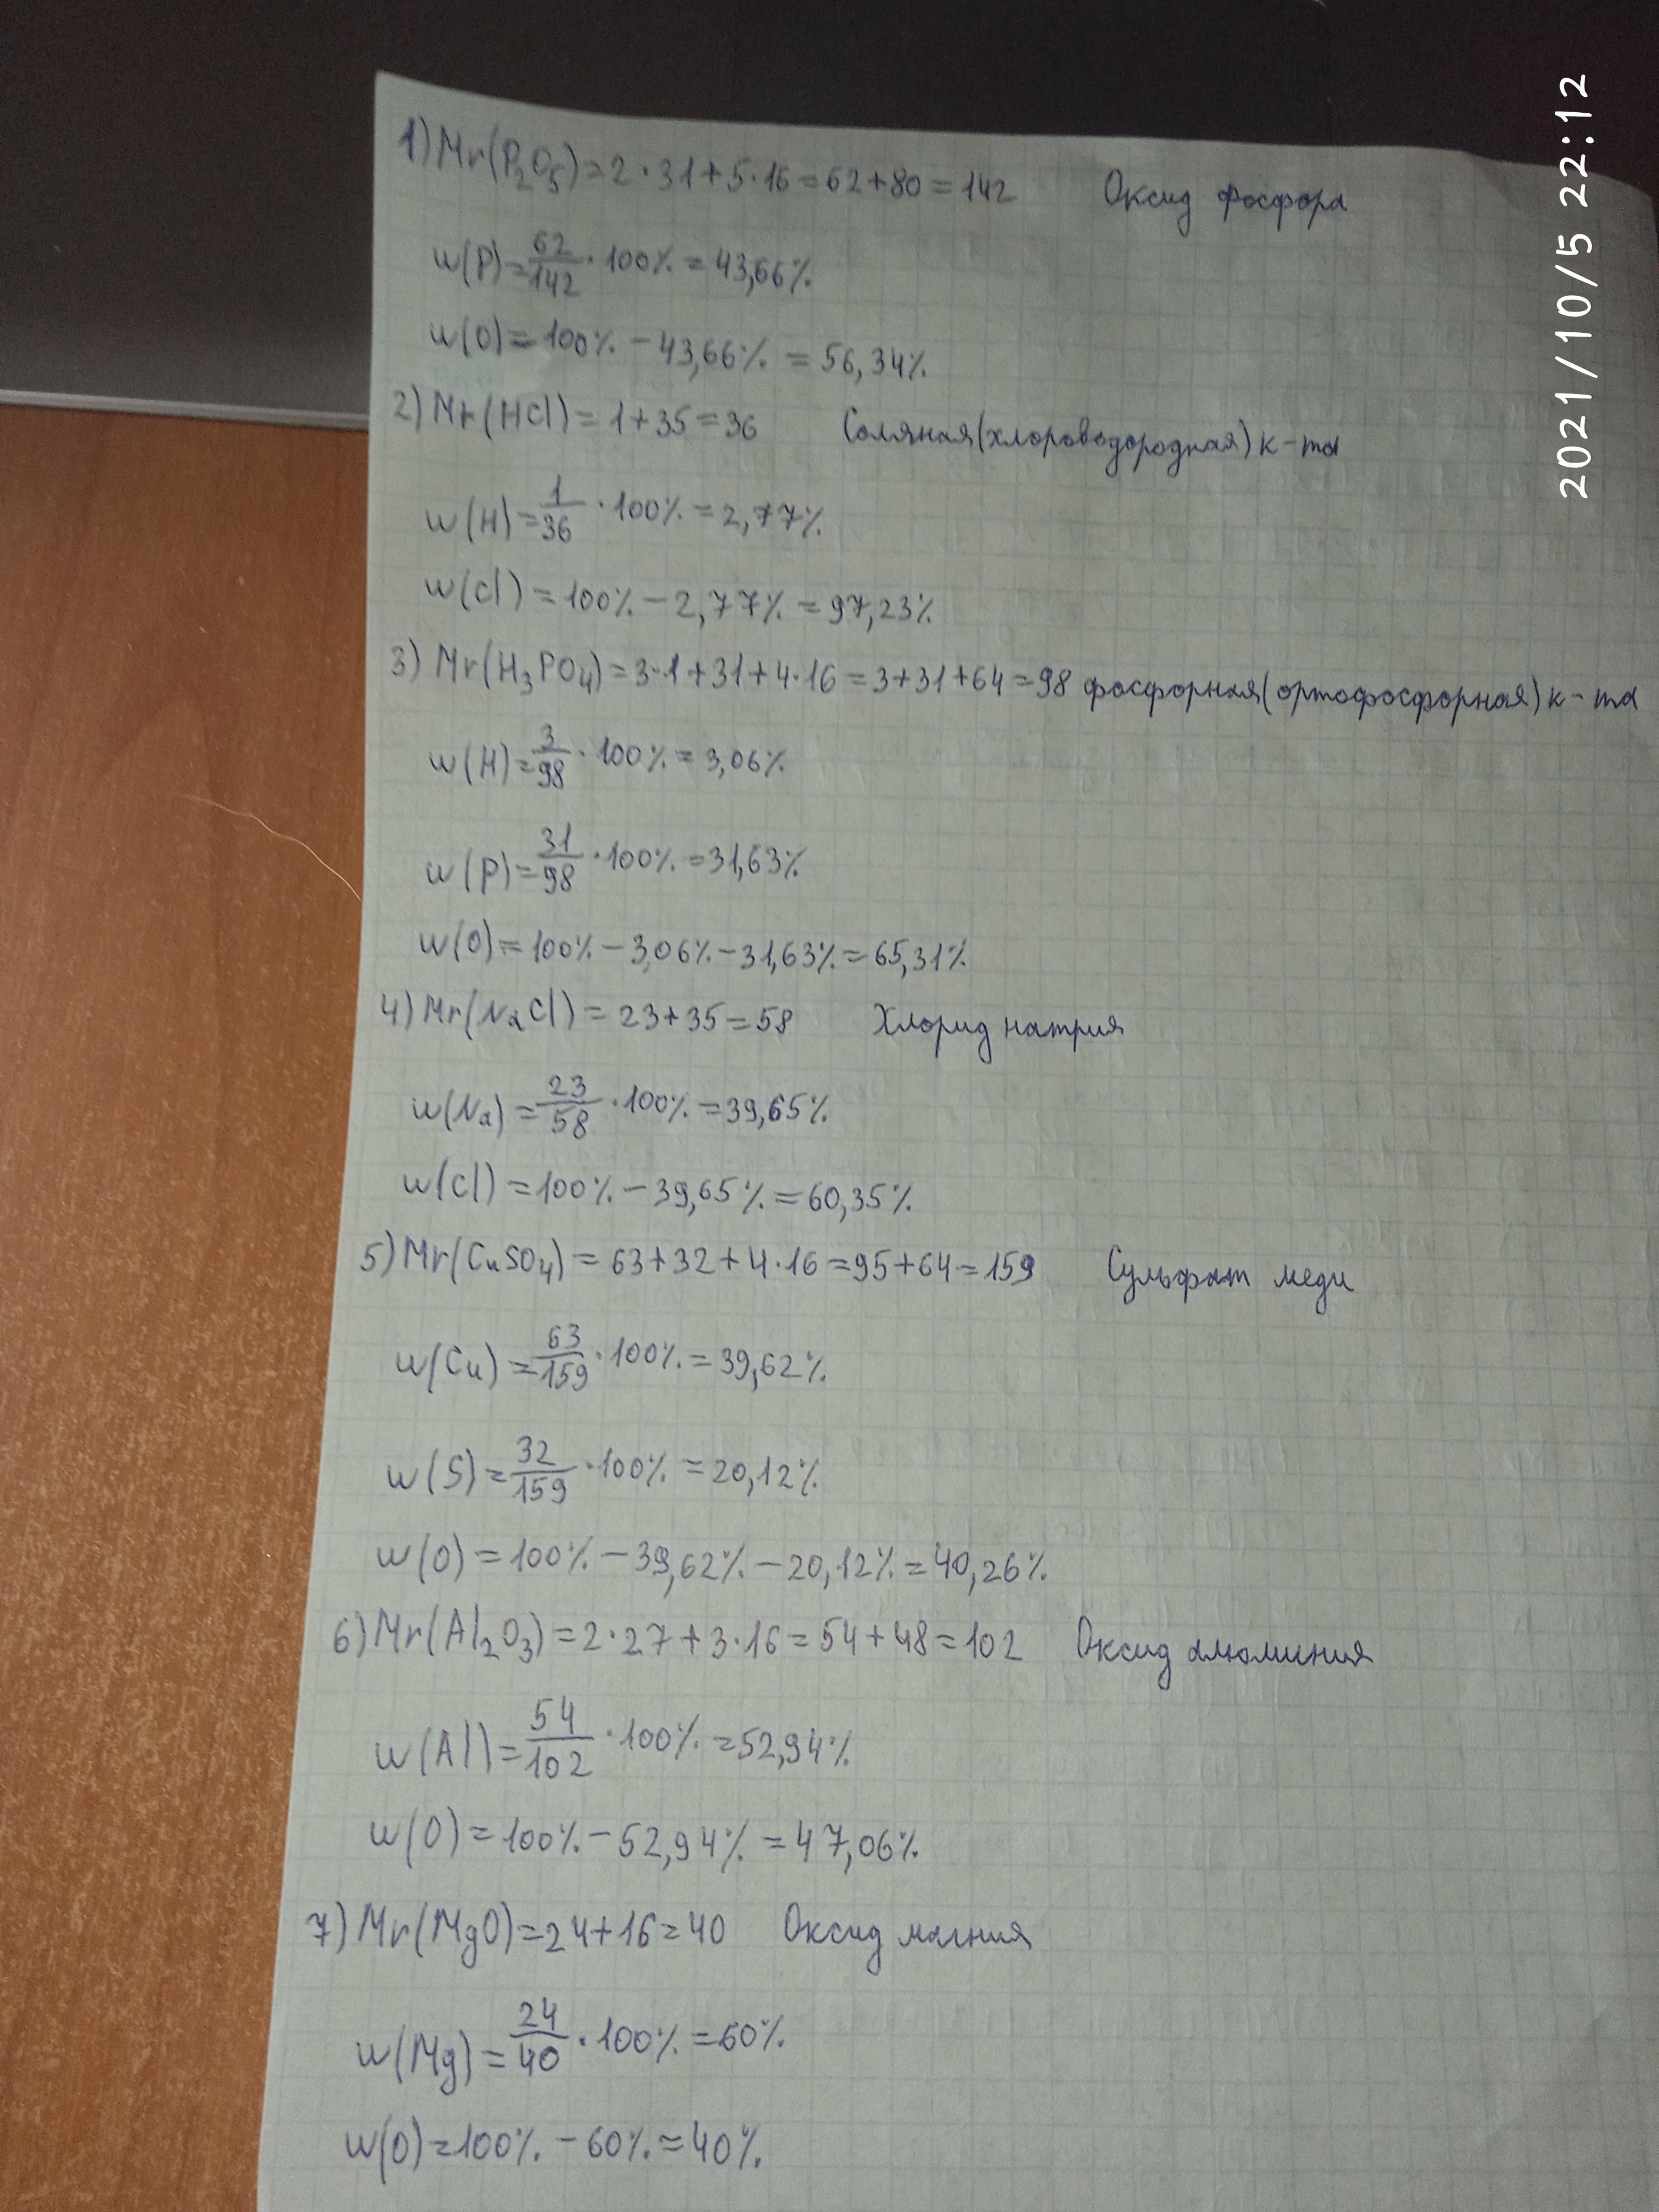 1) Mr(P₂O₅)=2·31+5·16=62+80=142 Оксид фосфора
w(P)=62/142·100%=43,66%
w(O)=100%-43,66%=56,34%
2) Mr(HCl)=1+35=36 Соляная(хлороводородная) к-та
w(H)=1/36·100%=2,77%
w(Cl)=100%-2,77%=97,23%
3) Mr(H₃PO₄)=3·1+31+4·16=3+31+64=98 фосфорная(ортофосфорная) к-та
w(H)=3/98·100%=3,06%
w(P)=31/98·100%=31,63%
w(O)=100%-3,06%-31,63%=65,31%
4) Mr(NaCl)=23+35=58 Хлорид натрия
w(Na)=23/58·100%=39,65%
w(Cl)=100%-39,65%=60,35%
5) Mr(CuSO₄)=63+32+4·16=95+64=159 Сульфат меди
w(Cu)=63/159·100%=39,62%
w(S)=32/159·100%=20,12%
w(O)=100%-39,62%-20,12%=40,26%
6) Mr(Al₂O₃)=2·27+3·16=54+48=102 Оксид алюминия
w(Al)=54/102·100%=52,94%
w(O)=100%-52,94%=47,06%
7) Mr(MgO)=24+16=40 Оксид магния
w(Mg)=24/40·100%=60%
w(O)=100%-60%=40%
2021/10/5 22:12